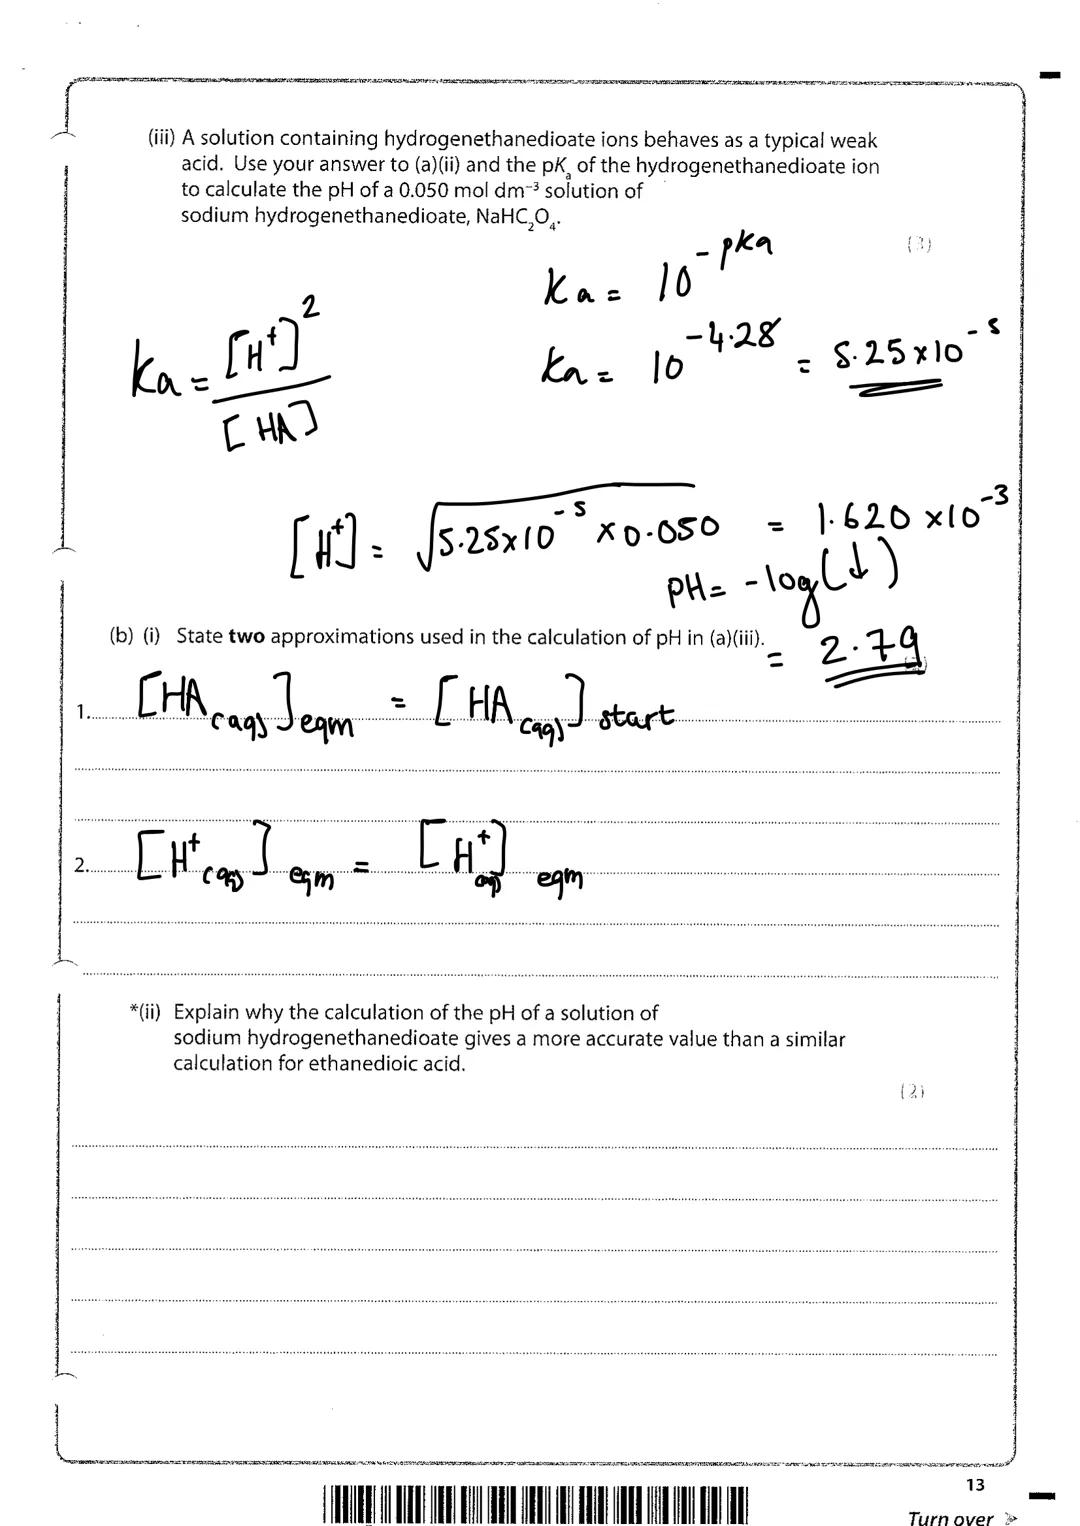 (iii) A solution containing hydrogenethanedioate ions behaves as a typical weak
acid. Use your answer to (a)(ii) and the pKₐ of the hydrogenethanedioate ion
to calculate the pH of a 0.050 mol dm⁻³ solution of
sodium hydrogenethanedioate, NaHC₂O₄.
(3)
Ka = 10^-pKa
Ka = [H⁺]² / [HA]
Ka = 10^-4.28 = 5.25 x 10⁻⁵
[H⁺] = √5.25x10⁻⁵ x 0.050 = 1.620 x10⁻³
pH = -log(↓)
(b) (i) State two approximations used in the calculation of pH in (a)(iii).
= 2.79
1. [HA(aq)]eqm = [HA(aq)]start
2. [H⁺(aq)]eqm = [H⁺(aq)]eqm
*(ii) Explain why the calculation of the pH of a solution of
sodium hydrogenethanedioate gives a more accurate value than a similar
calculation for ethanedioic acid.
(2)
13
Turn over